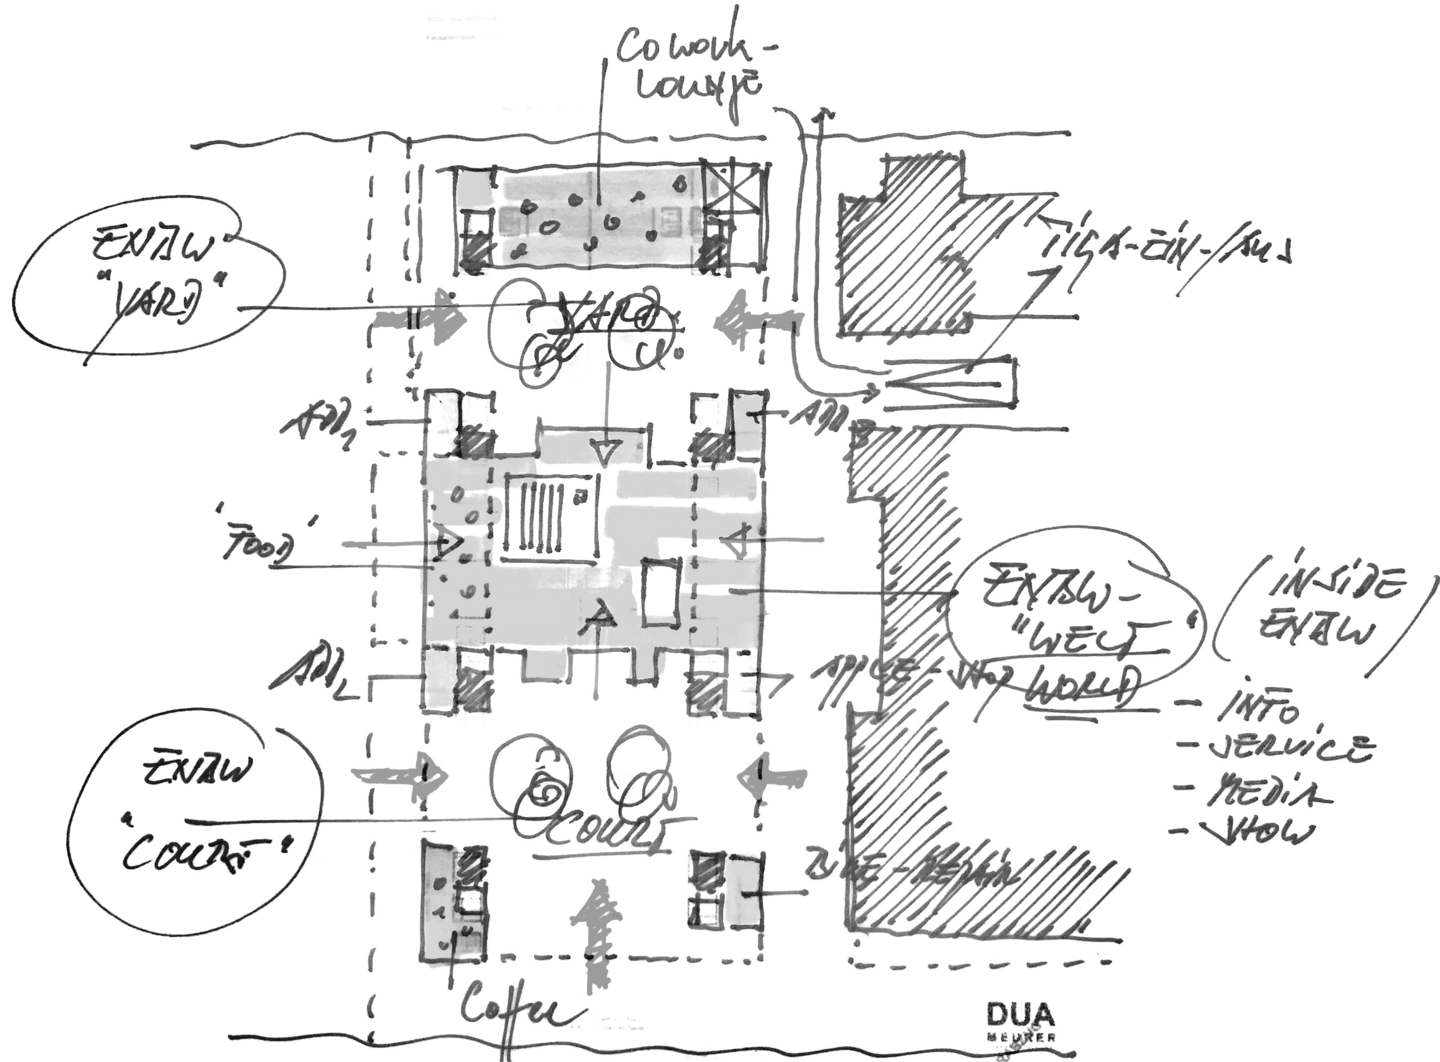 Cowork-
Lounge
ENBW
"YARD"
TIGA-EIN-/AUS
YARD
ADD1
ADD3
'FOOD'
ENBW-
"WELT"
WORLD
(INSIDE
ENBW)
ADD2
APPLE-SHOP
- INFO
- SERVICE
- MEDIA
- SHOW
ENBW
"COURT"
COURT
BIKE-REPAIR
Coffee
DUA
MEURER